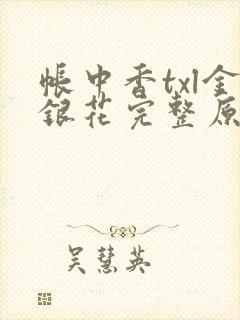 帐中香txl金
银花完整原
吴慧英